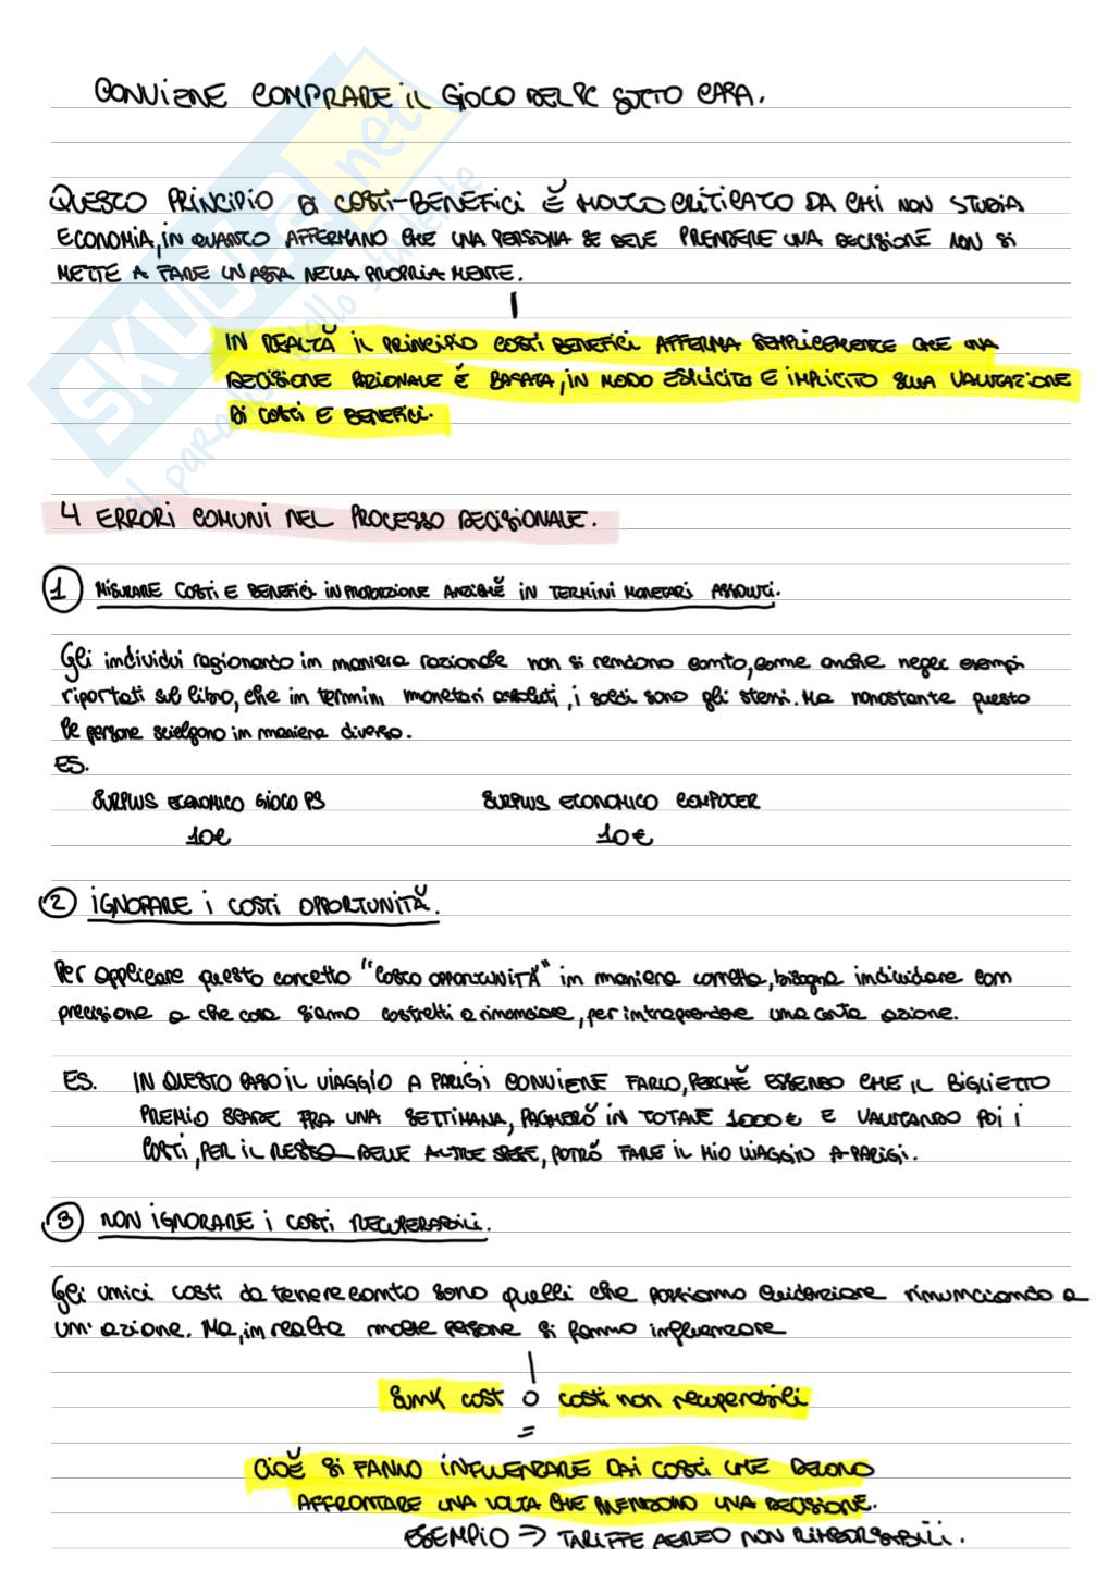 CONVIENE COMPRARE IL GIOCO DEL PC SOTTO CASA.
QUESTO PRINCIPIO DI COSTI-BENEFICI È MOLTO CRITICATO DA CHI NON STUDIA
ECONOMIA, IN QUANTO AFFERMANO CHE UNA PERSONA SE DEVE PRENDERE UNA DECISIONE NON SI
METTE A FARE UN'ASTA NELLA PROPRIA MENTE.
IN REALTÀ IL PRINCIPIO COSTI BENEFICI AFFERMA SEMPLICEMENTE CHE UNA
DECISIONE RAZIONALE È BASATA, IN MODO ESPLICITO E IMPLICITO SULLA VALUTAZIONE
DI COSTI E BENEFICI.
4 ERRORI COMUNI NEL PROCESSO DECISIONALE.
1 MISURARE COSTI E BENEFICI IN PROPORZIONE ANZICHÈ IN TERMINI MONETARI ASSOLUTI.
Gli individui ragionando in maniera razionale non si rendono conto, come anche negli esempi
riportati sul libro, che in termini monetari assoluti, i soldi sono gli stessi. Ma nonostante questo
le persone scielgono in maniera diversa.
ES.
SURPLUS ECONOMICO GIOCO PS SURPLUS ECONOMICO COMPUTER
10€ 10€
2 IGNORARE I COSTI OPPORTUNITÀ.
Per applicare questo concetto "COSTO OPPORTUNITÀ" in maniera corretta, bisogna individuare con
precisione a che cosa siamo costretti a rinunciare, per intraprendere una certa azione.
ES. IN QUESTO CASO IL VIAGGIO A PARIGI CONVIENE FARLO, PERCHÈ ESSENDO CHE IL BIGLIETTO
PREMIO SCADE FRA UNA SETTIMANA, PAGHERÒ IN TOTALE 1000€ E VALUTANDO POI I
COSTI, PER IL RESTO DELLE ALTRE SPESE, POTRÒ FARE IL MIO VIAGGIO A PARIGI.
3 NON IGNORARE I COSTI RECUPERABILI.
Gli unici costi da tenere conto sono quelli che possiamo evidenziare rinunciando a
un'azione. Ma, in realtà molte persone si fanno influenzare
Sunk cost o costi non recuperabili
=
CIOÈ SI FANNO INFLUENZARE DAI COSTI CHE DEVONO
AFFRONTARE UNA VOLTA CHE PRENDONO UNA DECISIONE.
ESEMPIO => TARIFFE AEREO NON RIMBORSABILI.
SKUOLA.net